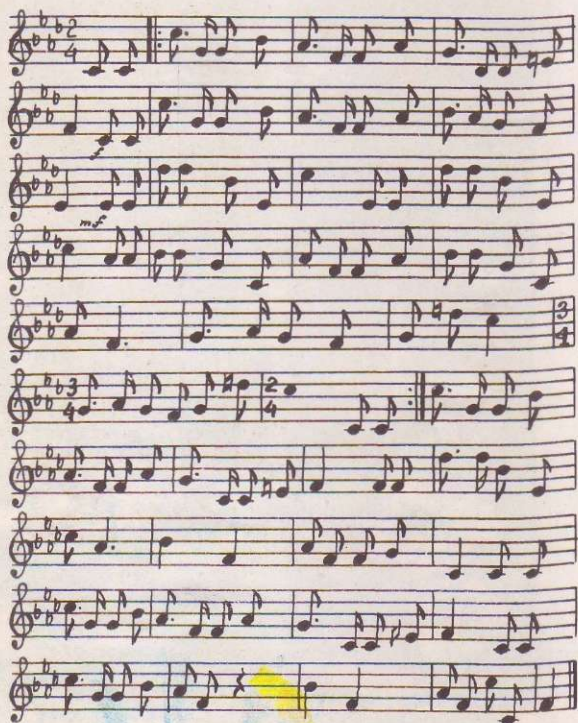 2
4
f
mf
3
4
3
4
2
4